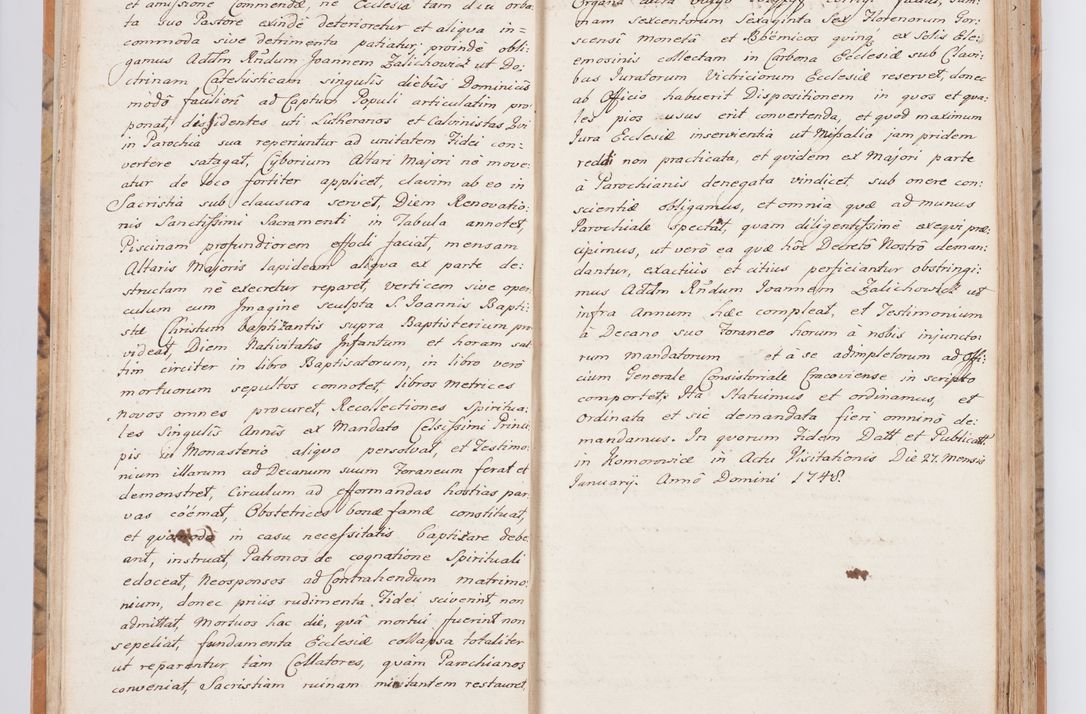 et amissione Commendæ, ne Ecclesia tam diu orba
ta suo Pastore exinde deterioretur et aliqva in=
commoda sive detrimenta patiatur; proinde obli:
gamus Addm Rńdum Joannem Zalichowicz ut Do:
ctrinam Catechisticam singulis diebus Dominicis
modô faciliori ad Captum Populi articulatim pro
ponat, dissidentes uti Lutheranos et Calvinistas qvi
in Parochia sua reperiuntur ad unitatem Fidei con:
vertere satagat, Cyborium Altari Majori ne move
atur de loco fortiter applicet, clavim ab eo in
Sacristia sub clausura servet, Diem Renovatio
nis Sanctissimi Sacramenti in Tabula annotet,
Piscinam profundiorem effodi faciat, mensam
Altaris Majoris lapideam aliqva ex parte de:
structam ne execretur reparet, verticem sive oper
culum cum Imagine sculpta S. Joannis Bapti
stæ Christum baptizantis supra Baptisterium pro
videat, Diem Nativitatis Infantum et horam sal
tim circiter in libro Baptisatorum, in libro verô
mortuorum sepultos connotet, libros metrices
novos omnes procuret, Recollectiones Spiritua:
les Singulis Annis ex Mandato Celsissimi Princi
pis in Monasterio aliqvo persolvat, et Testimo
nium illarum ad Decanum suum Foraneum ferat et
demonstret, Circulum ad efformandas hostias par
vas coëmat, Obstetrices bonæ famæ constituat,
et qvomodo in casu necessitatis baptizare debe
ant, instruat, Patronos de cognatione Spirituali
edoceat, Neosponsos ad Contrahendum matrimo
nium, donec priùs rudimenta Fidei sciverint, non
admittat, Mortuos hac die, qvâ mortui fuerint non
sepeliat, fundamenta Ecclesiæ collapsa totaliter
ut reparentur tàm Collatores, quàm Parochianos
conveniat, Sacristiam ruinam minitantem restauret,
Organa
mam sexcentorum Sexaginta Sex Florenorum Gor:
scensi monetâ et Bohemicos qving ex Solis Ele:
emosinis collectam in Carbona Ecclesiæ sub Clavi:
bus Juratorum Victriciorum Ecclesiæ reservet, donec
ab Officio habuerit Dispositionem in qvos et qva:
les pios usus erit convertenda, et quod maximum
Jura Ecclesiæ inservientia ut Missalia jam pridem
reddi non practicata, et qvidem ex Majori parte
à Parochianis denegata vindicet, sub onere con:
scientiæ obligamus, et omnia quæ ad munus
Parochiale spectat, quam diligentissimè exequi præ
cipimus, ut verò ea quæ hôc Decretô Nostrô deman:
dantur, exactiùs et citiùs perficiantur obstringi:
mus Addm Rńdum Joannem Zalichowicz ut
infra Annum hæc compleat, et Testimonium
à Decano suo Foraneo horum à nobis injuncto:
rum mandatorum et à se adimpletorum ad Offi:
cium Generale Consistoriale Cracoviense in scripto
comportet. Ità Statuimus et ordinamus, et
Ordinata et sic demandata fieri omninò de:
mandamus. In qvorum Fidem Datt et Publicatt
in Komorowice in Actu Visitationis Die 27. Mensis
Januarij. Annô Domini 1748.